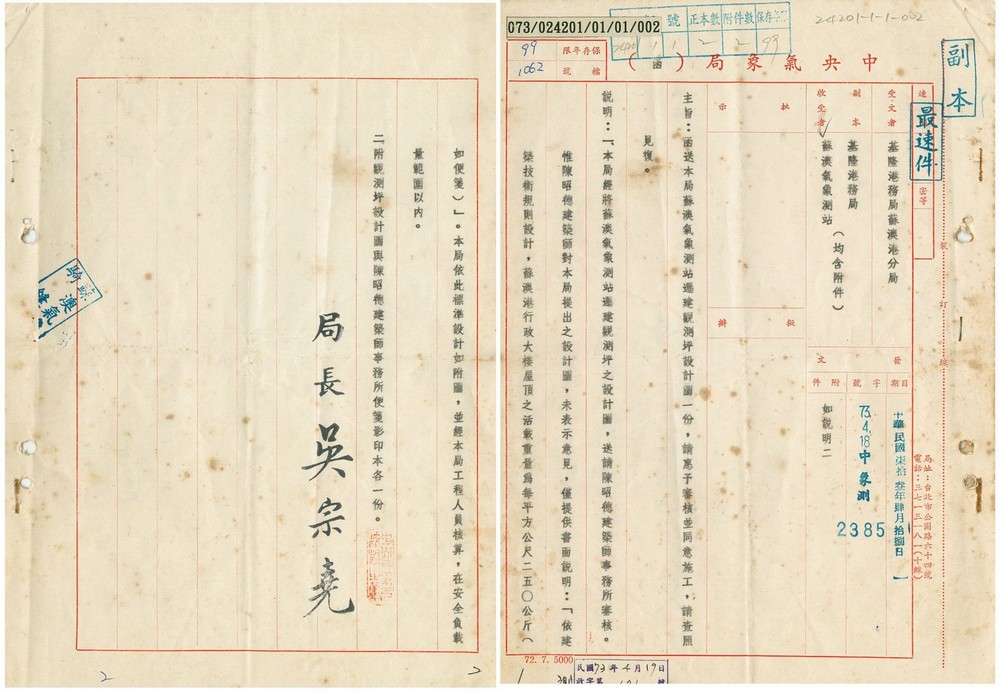 073/024201/01/01/002
號 正本數 附件數 保存年限
24201 1 1 2 2 99
24201-1-1-002
保存年限 99
檔號 1062
中央氣象局（函）
副本
最速件
速
密等
受文者 基隆港務局蘇澳港分局
副本收受者 基隆港務局
蘇澳氣象測站（均含附件）
批示
擬辦
發文
日期 中華民國柒拾叁年肆月拾捌日
字號 73.4.18 中象測
2385
附件 如說明二
裝訂線
局址：台北市公園路六十四號
電話：三七一三一八一（十線）
主旨：函送本局蘇澳氣象測站遷建觀測坪設計圖一份，請惠予審核並同意施工，請查照
見復。
說明：一、本局經將蘇澳氣象測站遷建觀測坪之設計圖，送請陳昭德建築師事務所審核。
惟陳昭德建築師對本局提出之設計圖，未表示意見，僅提供書面說明：「依建
築技術規則設計，蘇澳港行政大樓屋頂之活載重量為每平方公尺二五〇公斤（
72.7.5000
民國73年4月19日
如便箋）」。本局依此標準設計如附圖，並經本局工程人員核算，在安全負載
量範圍以內。
二、附觀測坪設計圖與陳昭德建築師事務所便箋影印本各一份。
局長吳宗堯
蘇澳氣
騎
2